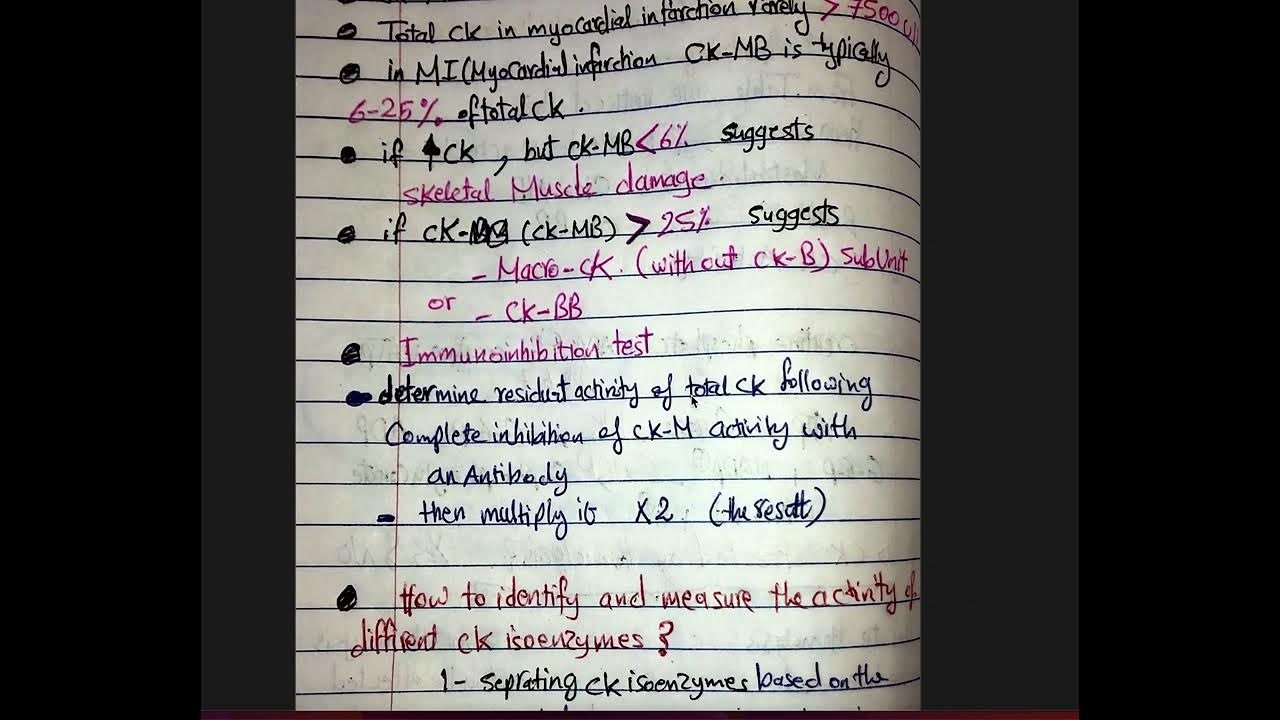 • Total CK in myocardial infarction rarely > 7500 U/
• in MI (Myocardial infarction CK-MB is typically
6-25% of total CK.
• if ↑CK, but CK-MB <6% suggests
skeletal Muscle damage.
• if CK- (CK-MB) > 25% suggests
- Macro-CK. (without CK-B) SubUnit
or - CK-BB
• Immunoinhibition test
- determine activity of total CK following
Complete inhibition of CK-M activity with
an Antibody
- then multiply it X2. (the result)
• How to identify and measure the activity of
different CK isoenzymes?
1- seprating CK isoenzymes based on the